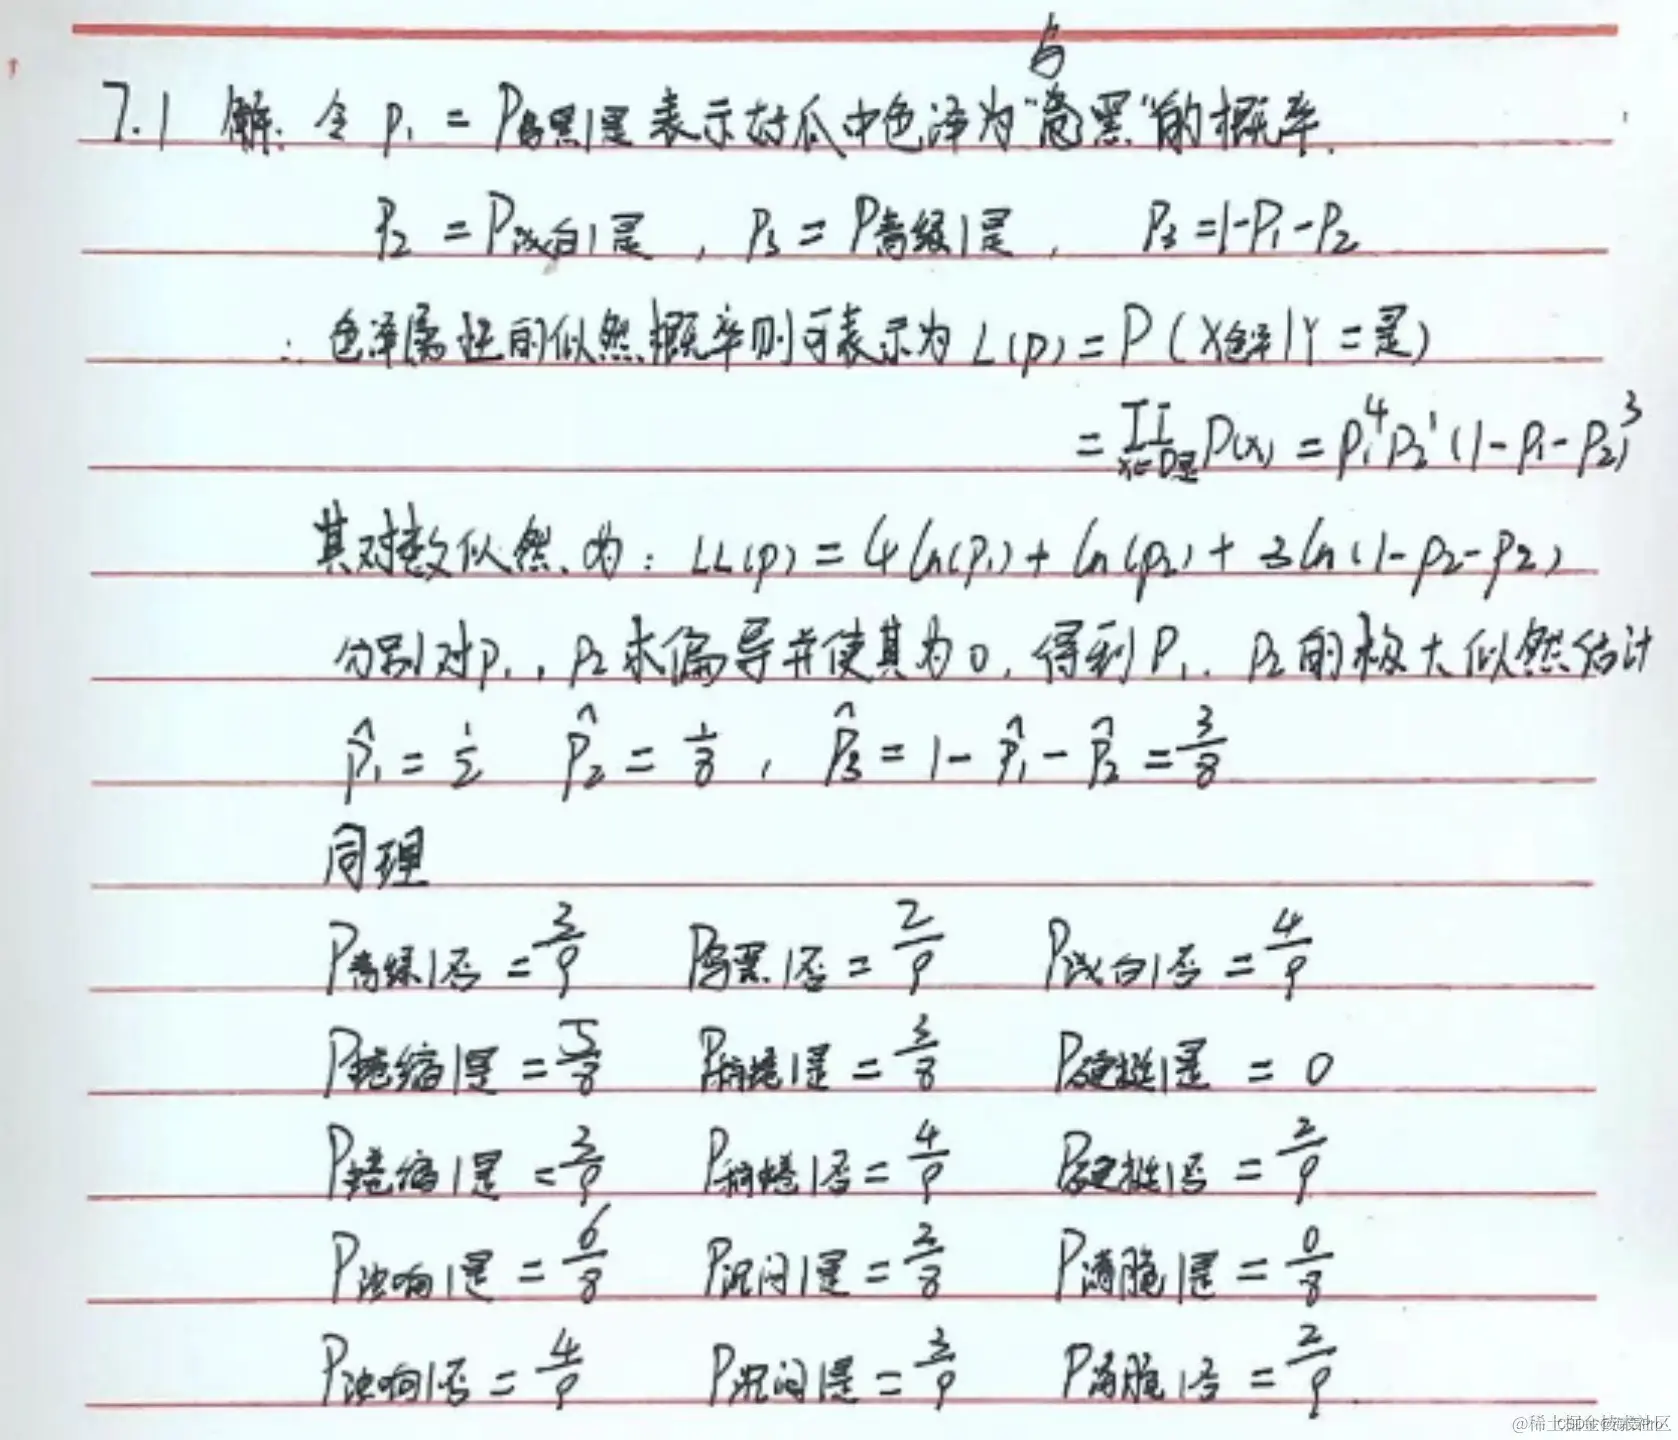 乌
7.1 解: 令 p₁ = P乌黑|是 表示好瓜中色泽为“黑”的概率.
P₂ = P浅白|是 , P₃ = P青绿|是 , P₃ = 1-P₁-P₂
∴ 色泽属性的似然概率则可表示为 L(p) = P(X色泽|Y=是)
= ∏x∈D是 P(x) = P₁⁴P₂¹(1-P₁-P₂)³
其对数似然为: LL(p) = 4ln(p₁) + ln(p₂) + 3ln(1-p₂-p₂)
分别对p₁, p₂求偏导并使其为0, 得到P₁. P₂的极大似然估计
p̂₁ = 1/2 p̂₂ = 1/8 , p̂₃ = 1 - p̂₁ - p̂₂ = 3/8
同理
P青绿|否 = 3/9 P乌黑|否 = 2/9 P浅白|否 = 4/9
P蜷缩|是 = 5/8 P稍蜷|是 = 3/8 P硬挺|是 = 0
P蜷缩|是 = 3/9 P稍蜷|否 = 4/9 P硬挺|否 = 2/9
P浊响|是 = 6/8 P沉闷|是 = 2/8 P清脆|是 = 0/8
P浊响|否 = 4/9 P沉闷|是 = 3/9 P清脆|否 = 2/9
@稀土掘金技术社区